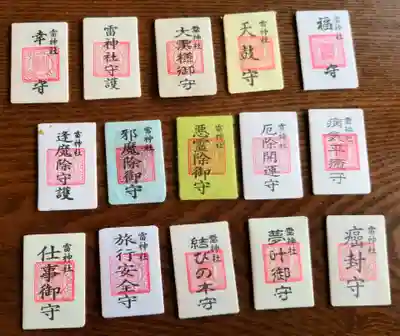 雷神社
幸守
雷神社守護
雷神社
大黒様御守
雷神社
天鼓守
雷神社
福守
逢魔除守護
雷神社
邪魔除御守
雷神社
悪霊除御守
雷神社
厄除開運守
雷神社
病気平癒守
雷神社
仕事御守
雷神社
旅行安全守
雷神社
結びの木守
雷神社
夢叶御守
癌封守